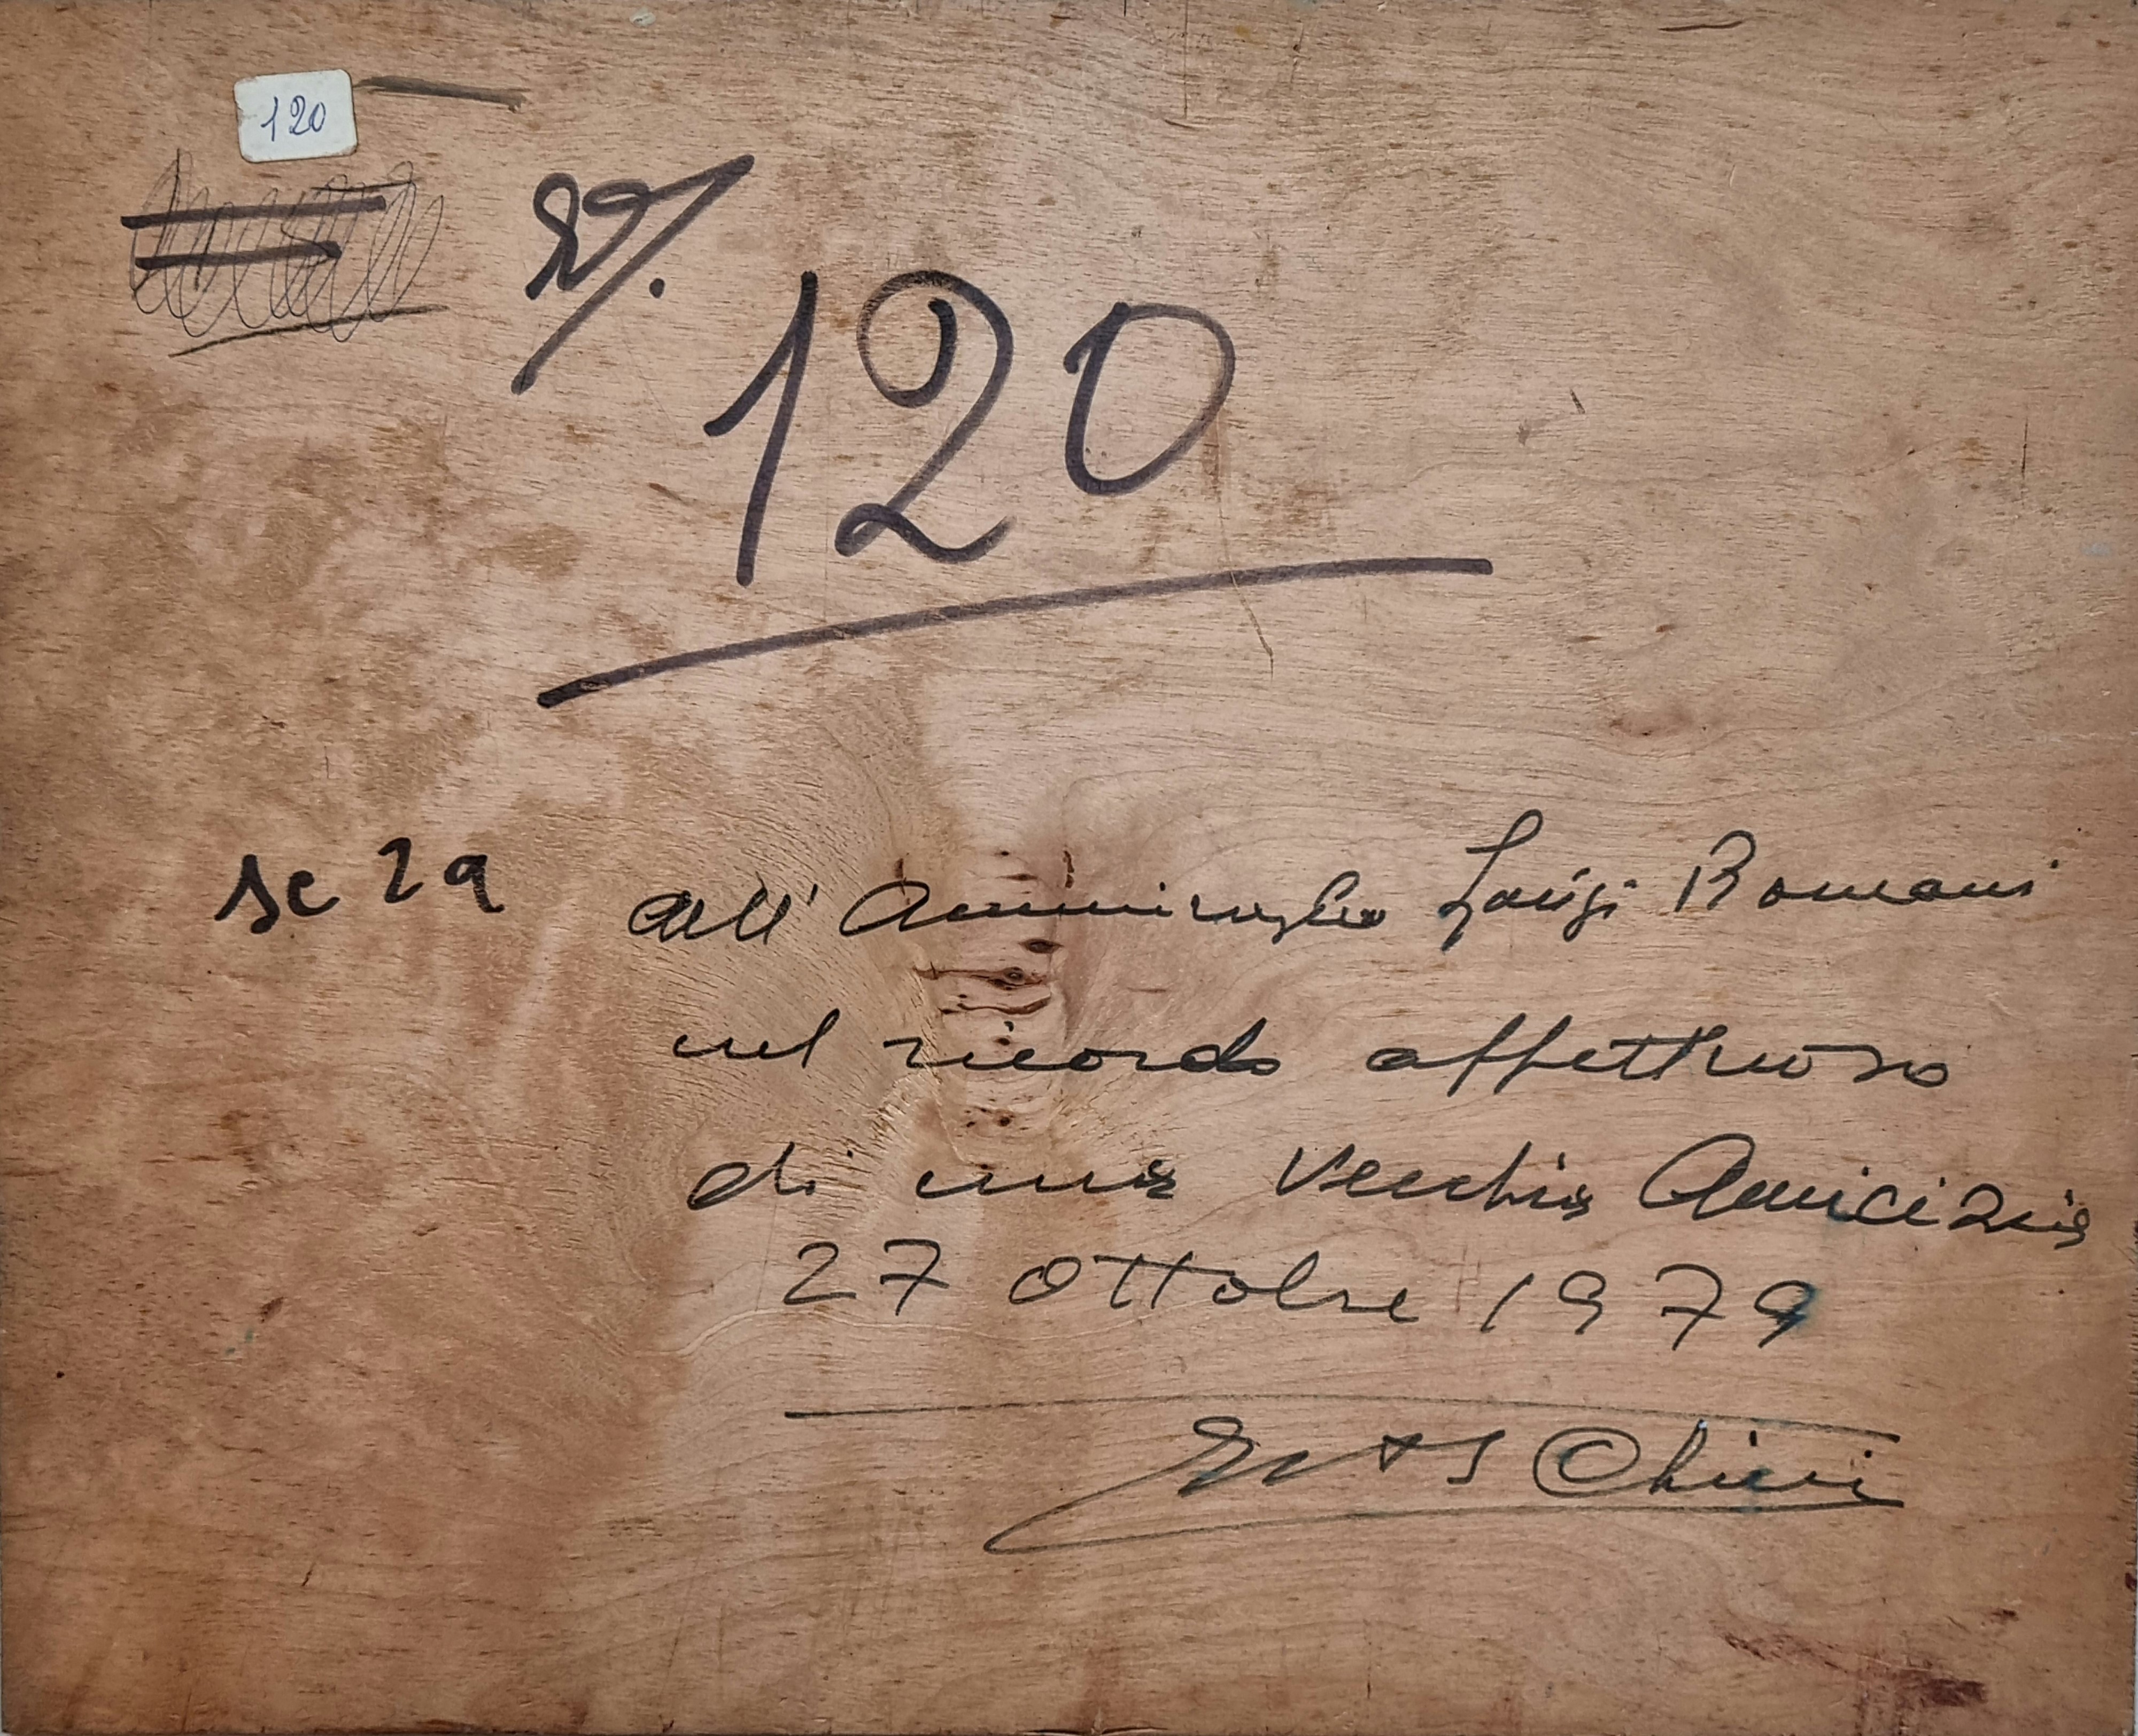 120
N.
120
Sc 29
all' Ammiraglio Luigi Romani
nel ricordo affettuoso
di una vecchia Amicizia
27 Ottobre 1979
Chini